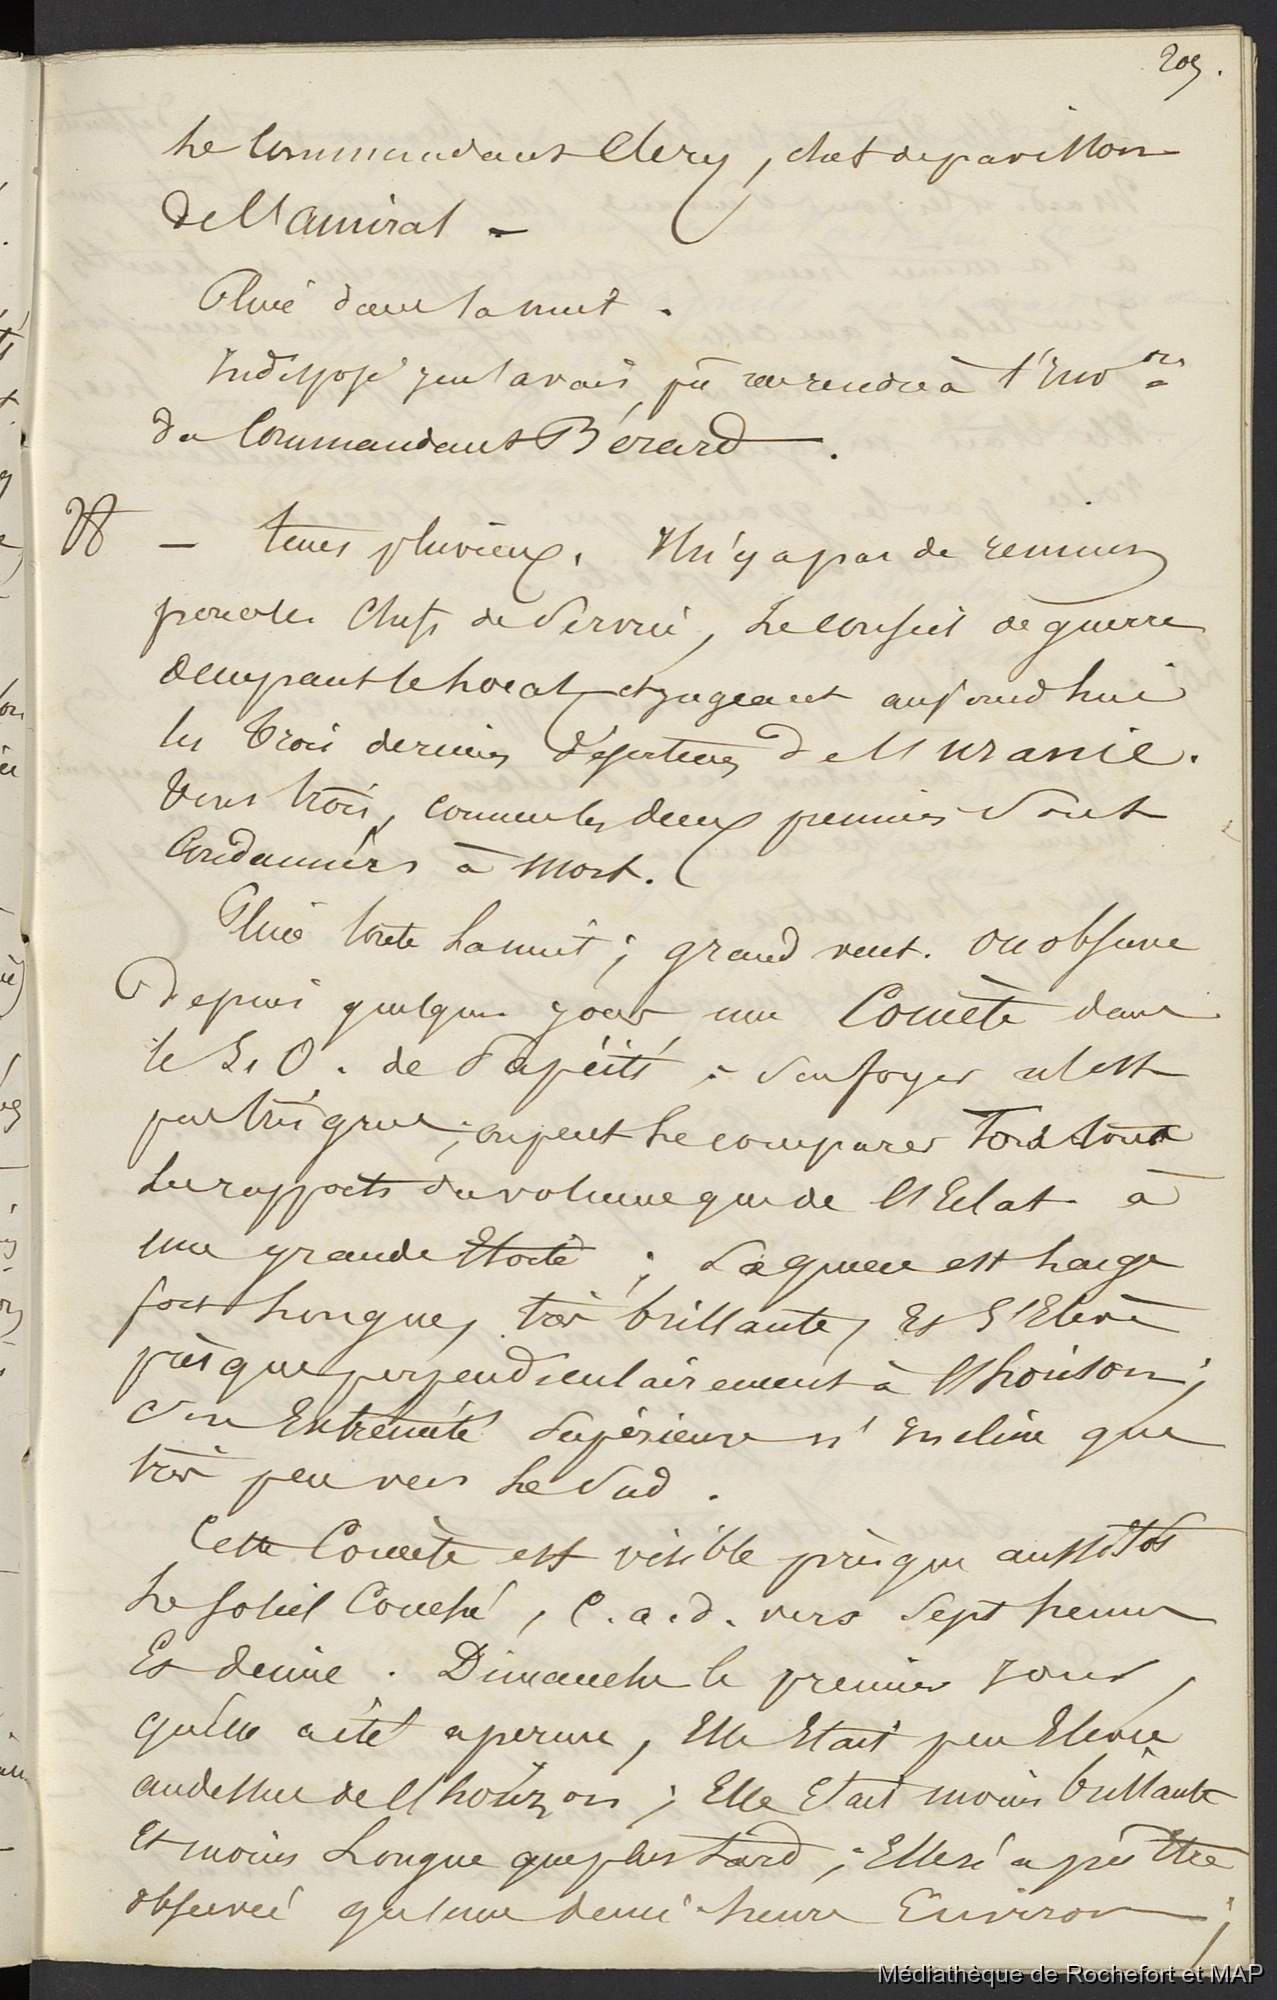 209.
Le Commandant Clery, chef de pavillon
de l'amiral -
Pluie dans la nuit.
Indisposé je n'avais pû me rendre à l'Inv.on
du Commandant Bérard.
- temps pluvieux. Il n'y a pas de réunion
pour les Chefs de Service, Le conseil de guerre
occupant le Local, et jugeant aujourd'hui
les trois derniers déserteurs de l'Uranie.
tous trois, comme les deux premiers sont
Condamnés à mort.
Pluie toute La nuit ; grand vent. on observe
Depuis quelques jours une Comète dans
le S. O. de Papéiti ; son foyer n'est
pas très gros ; on peut Le comparer sous tous
Les rapports du volume que de l'Eclat à
une grande Etoile ; La queue est Large
fort Longue, très brillante, Et S'Elève
prèsque perpendiculairement à l'horison ;
son Extrémité Supérieure n'incline que
très peu vers Le Sud.
Cette Comète est visible prèsque aussitôt
Le Soleil Couché, C.a.d. vers Sept heures
Et demie. Dimanche le premier jour,
qu'elle a été aperçue, Elle Etait peu Elevée
audessus de l'horizon ; Elle Etait moins brillante
Et moins Longue que plus tard ; Elle n'a pû Etre
observée qu'une demi heure Environ ;
Médiathèque de Rochefort et MAP